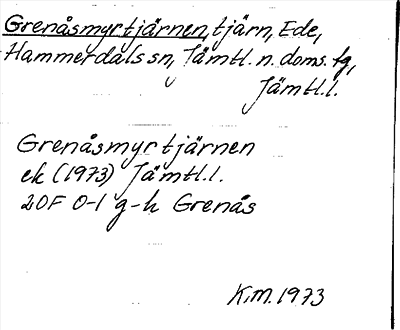 Grenåsmyrtjärnen, tjärn, Ede,
Hammerdals sn, Jämtl. n. doms. tg,
Jämtl.l.
Grenåsmyrtjärnen
ek (1973) Jämtl.l.
20F 0-1 g-h Grenås
K.M. 1973